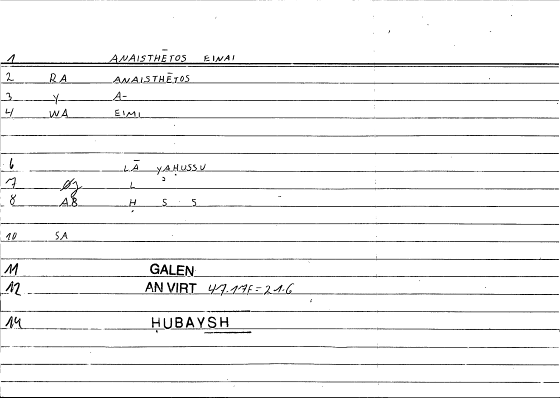 1 ANAISTHĒTOS EINAI
2 RA ANAISTHĒTOS
3 Y A-
4 WA EIMI
6 LĀ YAḤUSSU
7 L
8 AB Ḥ S S
10 SA
11 GALEN
12 AN VIRT 47.17F=21.6
14 ḤUBAYSH